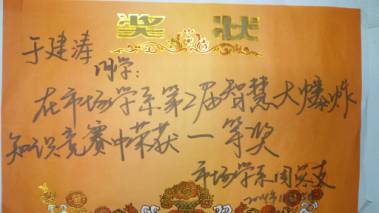 奖状
于建涛
同学:
在市场学系第2届智慧大爆炸
知识竞赛中荣获一等奖
市场学系团总支